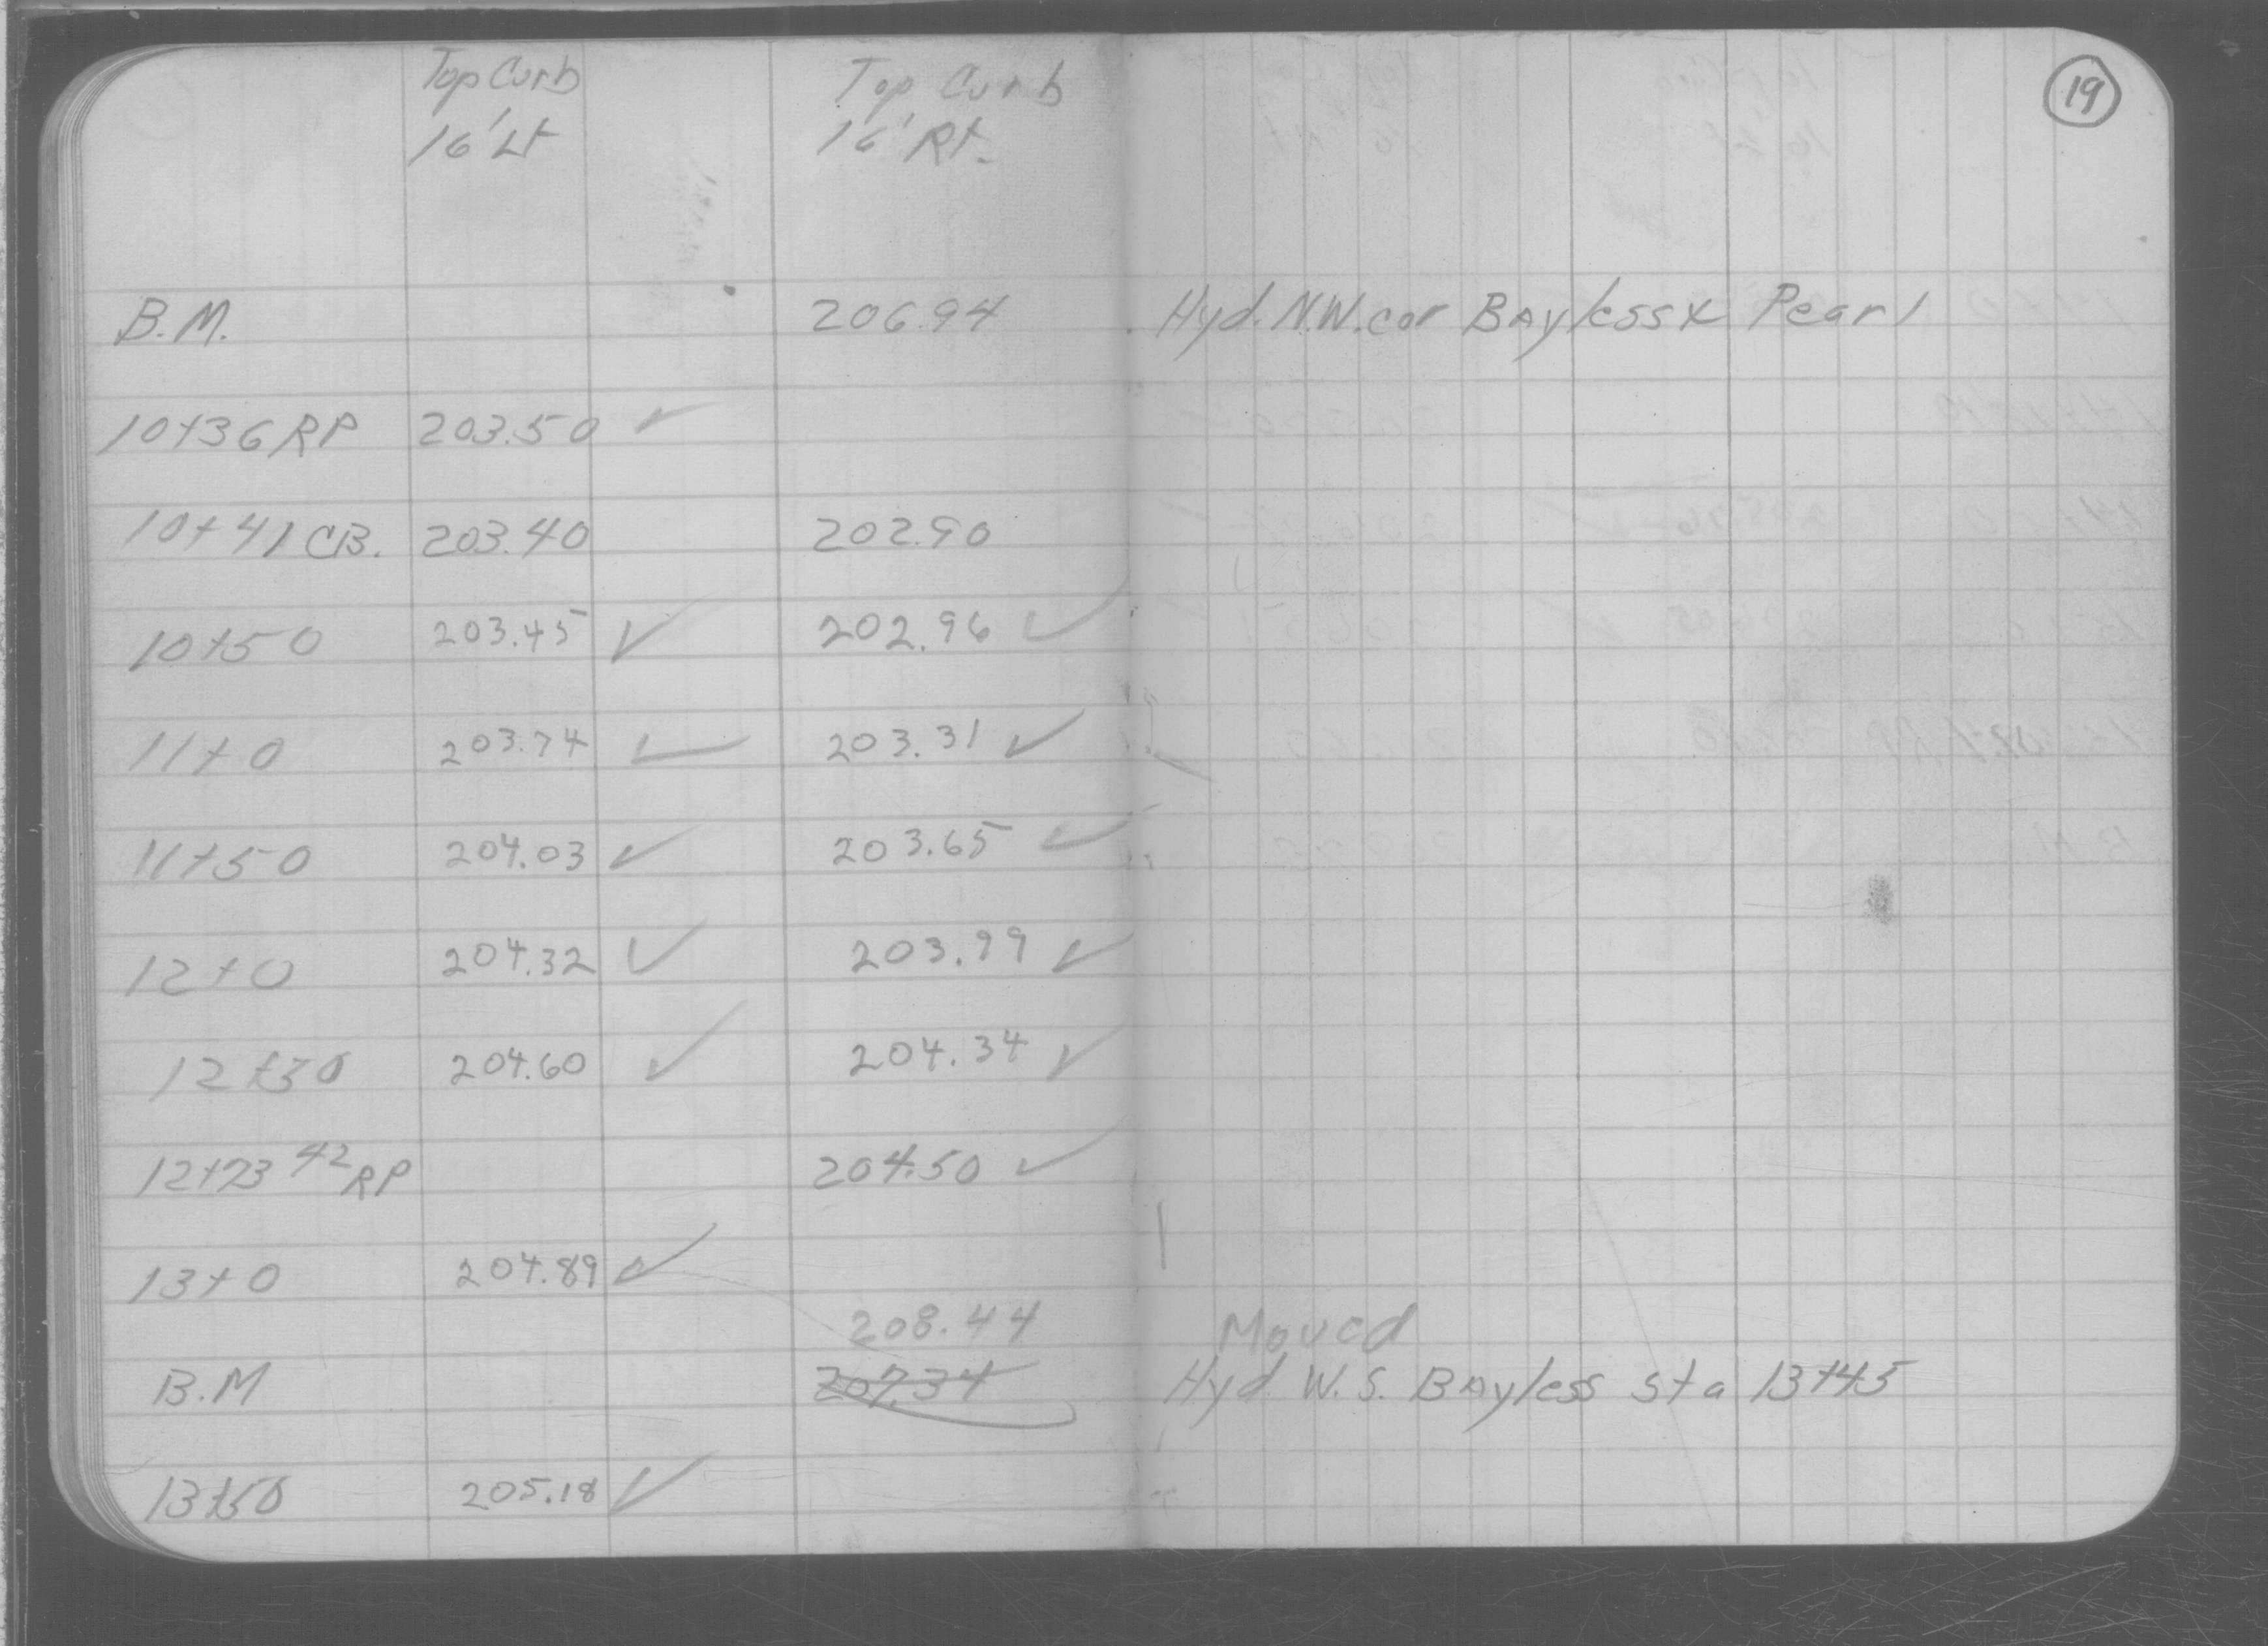 19
Top Curb Top Curb
16' Lt 16' Rt.
B.M. 206.94 Hyd. N.W. cor Bayless x Pearl
10+36 RP 203.50 ✓
10+41 CB. 203.40 202.90
10+50 203.45 ✓ 202.96 ✓
11+0 203.74 ✓ 203.31 ✓
11+50 204.03 ✓ 203.65 ✓
12+0 204.32 ✓ 203.99 ✓
12+50 204.60 ✓ 204.34 ✓
12+73 42 RP 204.50 ✓
13+0 204.89 ✓
208.44 Moved
B.M 207.34 Hyd W.S. Bayless sta 13+45
13+50 205.18 ✓